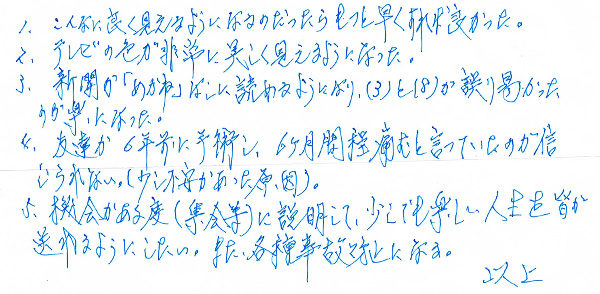 1. こんなに良く見えるようになるのだったらもっと早くすれば良かった。
2. テレビの色が非常に美しく見えるようになった。
3. 新聞が「めがね」なしに読めるようになり、(3)と(8)が誤り易かった
のが楽になった。
4. 友達が6年前に手術し、6ヶ月間程痛むと言っていたのが信
じられない。(少し不安があった原因)。
5. 機会がある度(集会等)に説明して、少しでも楽しい人生を皆が
送れるようにしたい。また、各種事故防止になる。
以上